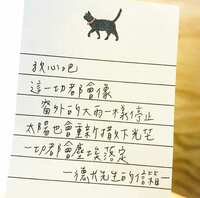 放心吧
這一切都會像
窗外的大雨一樣停止
太陽也會重新播下光芒
一切都會塵埃落定
—德犬先生的信箱—